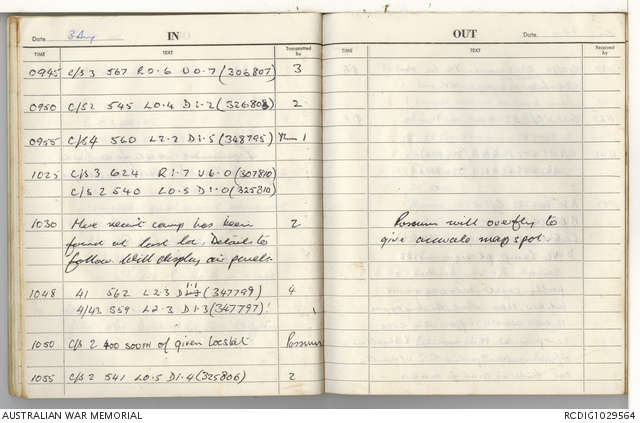 Date 3 Aug
IN
TIME TEXT Transmitted by
0945 C/S 3 567 R0.6 U0.7 (306807) 3
0950 C/S 2 545 L0.4 D1.2 (326808) 2
0955 C/S 4 560 L2.2 D1.5 (348795) 1
1025 C/S 3 624 R1.7 U6.0 (307810)
C/S 2 540 L0.5 D1.0 (325810)
1030 More recent camp has been 2
found at last loc. Details to
follow. Will display air panels.
1048 41 562 L2.3 D1.1 (347799) 4
4/43 559 L2.3 D1.3 (347797)!
1050 C/S 2 400 SOUTH of given Locstat Possum
1055 C/S 2 541 L0.5 D1.4 (325806) 2
OUT
Date
TIME TEXT Received by
Possum will overfly to
give accurate map spot.
AUSTRALIAN WAR MEMORIAL
RCDIG1029564